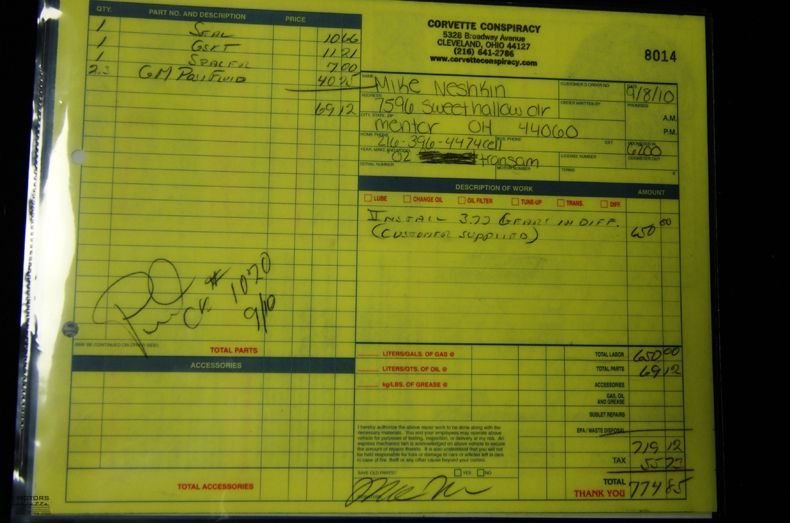 QTY. PART NO. AND DESCRIPTION PRICE
1 SEAL 10 66
1 GSKT 11 21
1 SEALER 7.00
2.5 GM POSI FLUID 40.25
69 12
Paid CK # 1070
9/10
MAY BE CONTINUED ON OTHER SIDE
TOTAL PARTS
ACCESSORIES
TOTAL ACCESSORIES
CORVETTE CONSPIRACY
5328 Broadway Avenue
CLEVELAND, OHIO 44127
(216) 641-2786
www.corvetteconspiracy.com
8014
NAME Mike Neshkin CUSTOMER'S ORDER NO. DATE 9/8/10
ADDRESS 7596 Sweethallow dr ORDER WRITTEN BY PROMISED A.M.
CITY, STATE, ZIP mentor OH 44060 P.M.
HOME PHONE 216-396-4474 cell BUS. PHONE EXT. ODOMETER IN 6200
YEAR, MAKE AND MODEL 02 transam LICENSE NUMBER ODOMETER OUT
SERIAL NUMBER MOTOR NUMBER TERMS
DESCRIPTION OF WORK AMOUNT
LUBE CHANGE OIL OIL FILTER TUNE-UP TRANS. DIFF.
INSTALL 3.73 GEARS IN DIFF. 650 00
(CUSTOMER SUPPLIED)
LITERS/GALS. OF GAS @ TOTAL LABOR 650 00
LITERS/QTS. OF OIL @ TOTAL PARTS 69 12
kg/LBS. OF GREASE @ ACCESSORIES
GAS, OIL AND GREASE
SUBLET REPAIRS
EPA / WASTE DISPOSAL
I hereby authorize the above repair work to be done along with the
necessary materials. You and your employees may operate above
vehicle for purposes of testing, inspection, or delivery at my risk. An
express mechanic's lien is acknowledged on above vehicle to secure
the amount of repairs thereto. It is also understood that you will not
be held responsible for loss or damage to cars or articles left in cars
in case of fire, theft or any other cause beyond your control.
719 12
TAX 55 73
SAVE OLD PARTS? YES NO
TOTAL
THANK YOU 774 85
MOTORS